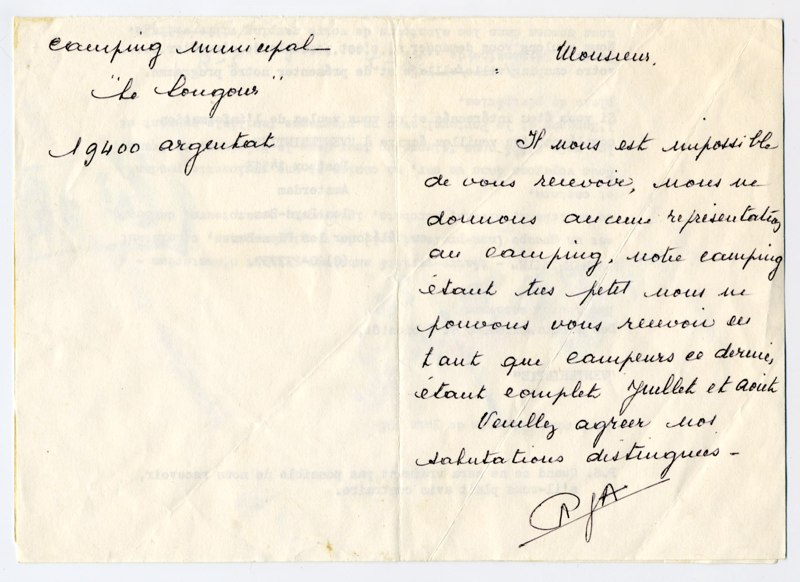 Camping Municipal
"Le Longour"
19400 argentat
Monsieur,
Il nous est impossible
de vous recevoir, nous ne
donnons aucune représentation
au camping, notre camping
étant très petit nous ne
pouvons vous recevoir en
tant que campeurs ce dernier
étant complet Juillet et Août
Veuillez agréer nos
salutations distinguées -